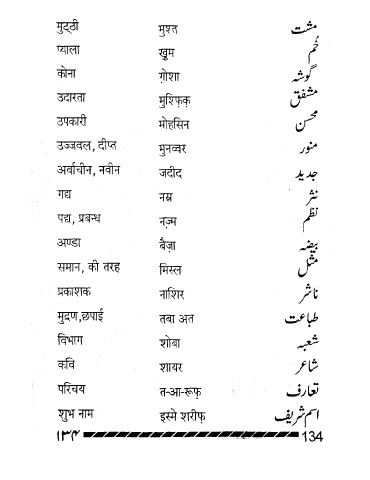 मुट्ठी मुश्त مشت
प्याला खुम خُم
कोना गोशा گوشہ
उदारता मुश्फ़िक़ مشفق
उपकारी मोहसिन محسن
उज्जवल, दीप्त मुनव्वर منور
अर्वाचीन, नवीन जदीद جدید
गद्य नस्र نثر
पद्य, प्रबन्ध नज़्म نظم
अण्डा बैज़ा بیضہ
समान, की तरह मिस्ल مثل
प्रकाशक नाशिर ناشر
मुद्रण,छपाई तबा अत طباعت
विभाग शोबा شعبہ
कवि शायर شاعر
परिचय त-आ-रूफ़ تعارف
शुभ नाम इस्मे शरीफ़ اسم شریف
۱۳۴ 134